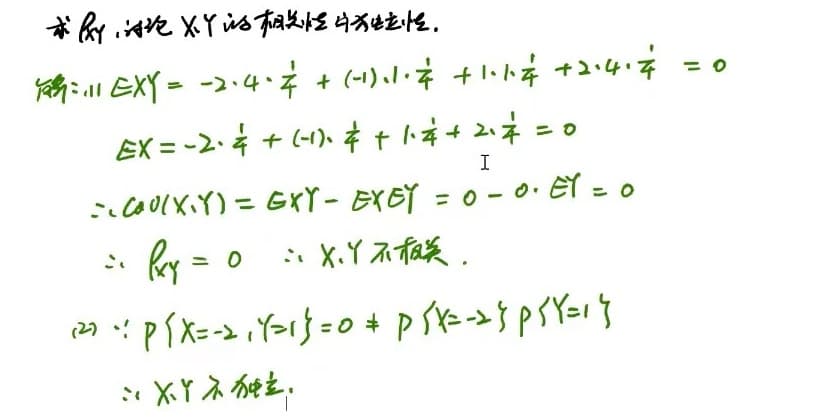 求 ρXY,讨论 X,Y 的相关性与独立性.
解:(1) EXY = -2·4·1/4 + (-1)·1·1/4 + 1·1·1/4 + 2·4·1/4 = 0
EX = -2·1/4 + (-1)·1/4 + 1·1/4 + 2·1/4 = 0
∴ COV(X,Y) = EXY - EXEY = 0 - 0·EY = 0
∴ ρXY = 0 ∴ X,Y 不相关.
(2) ∵ P{X=-2,Y=1} = 0 ≠ P{X=-2}P{Y=1}
∴ X,Y 不独立.